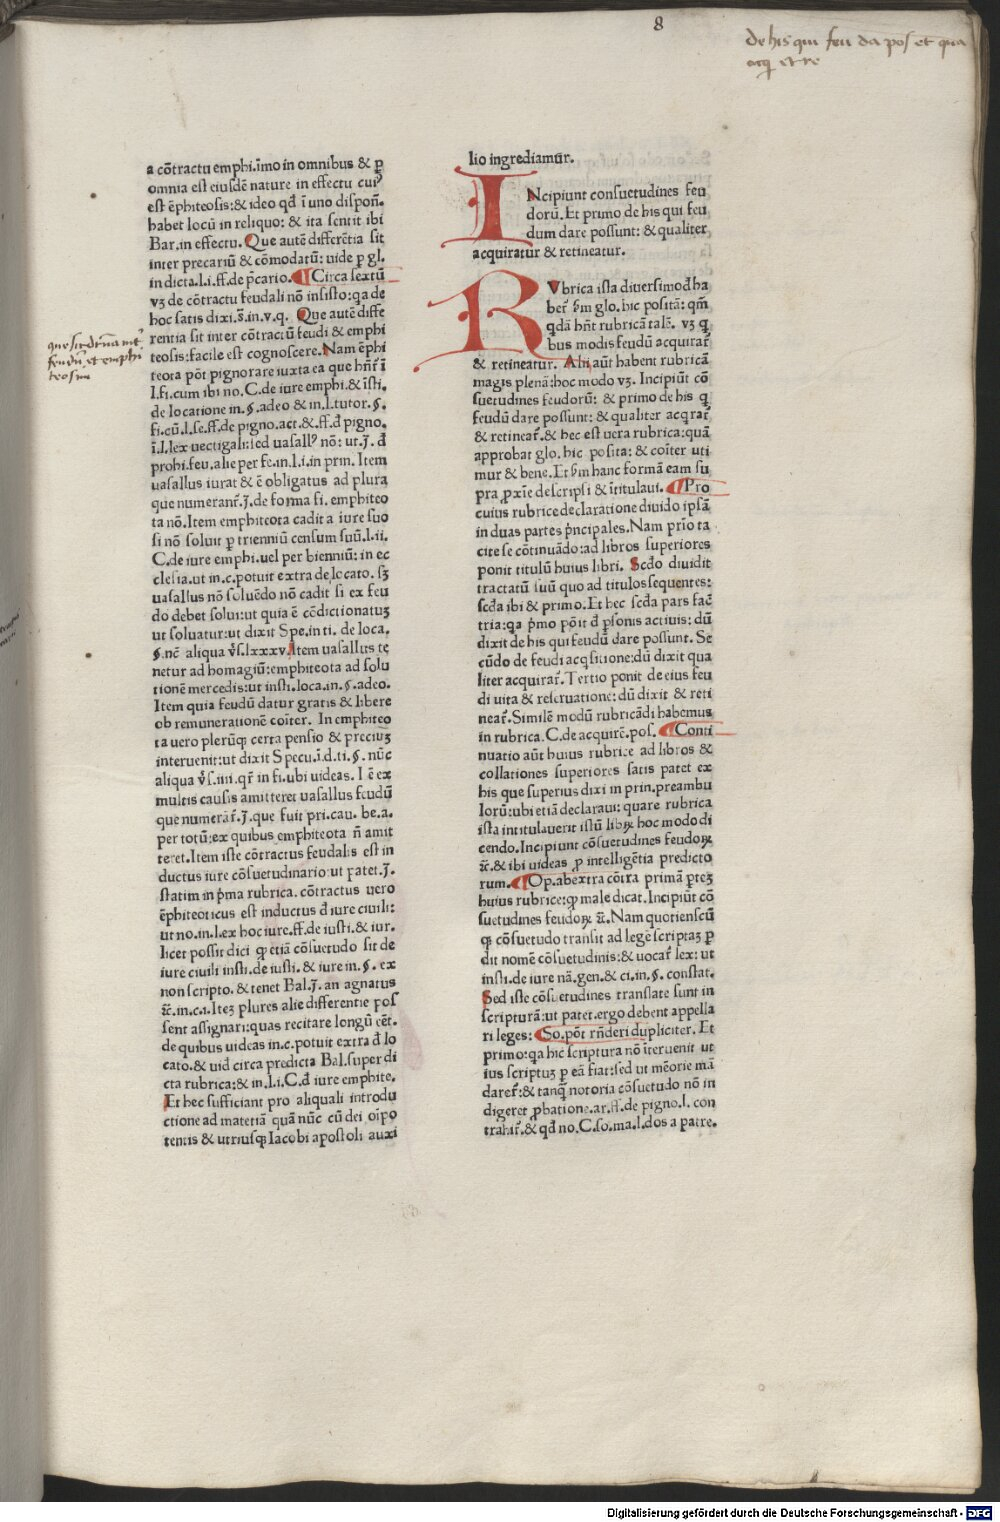 8
de his qui feu da pos et qua
acq et re
a cõtractu emphi.ĩmo in omnibus & ꝑ
omnia est eiusdẽ nature in effectu cuiꝰ
est ẽphiteosis:& ideo qđ ĩ uno dispoñ.
habet locũ in reliquo: & ita sentit ibi
Bar.in effectu. Que autẽ differẽtia sit
inter precariũ & cõmodatũ: uide ꝑ gl.
in dicta.l.i.ff.de p̃cario. ¶ Circa sextũ
vꝫ de cõtractu feudali nõ insisto:qa de
hoc satis dixi.s̃.in.v.q. Que autẽ diffe
rentia sit inter cõtractũ feudi & emphi
teosis:facile est cognoscere. Nam ẽphi
teota põt pignorare iuxta ea que hñr̃ ĩ
l.fi.cum ibi no.C.de iure emphi.& ĩsti.
de locatione in.§.adeo & in.l.tutor.§.
fi.cũ.l.se.ff.de pigno.act.& ff.đ pigno.
ĩ.l.lex uectigali:sed uasallꝰ nõ: ut.J. đ
prohi.feu.alie per fe.in.l.i.in prin. Item
uasallus iurat & ẽ obligatus ad plura
que numerant̃.J.de forma fi. emphiteo
ta nõ. Item emphiteota cadit a iure suo
si nõ soluit ꝑ trienniũ censum suũ.l.ii.
C.de iure emphi.uel per bienniũ: in ec
clesia.ut in.c.potuit extra de locato. sꝫ
uasallus nõ soluẽdo nõ cadit si ex feu
do debet solui:ut quia ẽ cẽdictionatuꝫ
ut soluatur:ut dixit Spe.in ti. de loca.
§.nẽ aliqua v̉s.lxxxv. Item uasallus te
netur ad homagiũ:emphiteota ad solu
tionẽ mercedis:ut insti.loca.in.§.adeo.
Item quia feudũ datur gratis & libere
ob remunerationẽ coĩter. In emphiteo
ta uero plerũqꝫ certa pensio & preciuꝫ
interuenit:ut dixit Specu.ĩ.d.ti.§. nũc
aliqua v̉s.iiii.qr̃ in fi.ubi uideas. I ẽ ex
multis causis amitteret uasallus feudũ
que numerãt̃.J.que fuit pri.cau. be.a.
per totũ:ex quibus emphiteota ñ amit
teret.Item iste cõtractus feudalis est in
ductus iure cõsuetudinario: ut patet.J.
statim in p̃ma rubrica. cõtractus uero
ẽphiteoticus est inductus đ iure ciuili:
ut no.in.l.ex hoc iure.ff.de iusti.& iur.
licet possit dici qꝫ etiã cõsuetudo sit de
iure ciuili insti.de iusti.& iure in.§. ex
non scripto.& tenet Bal.J. an agnatus
&c̃.in.c.i.Iteꝫ plures alie differentie pos
sent assignari:quas recitare longũ cẽt.
de quibus uideas in.c.potuit extra đ lo
cato.& uiđ circa predicta Bal.super di
cta rubrica:& in.l.i.C.đ iure emphite.
Et hec sufficiant pro aliquali introdu
ctione ad materiã quã nũc cũ dei oĩpo
tentis & utriusqꝫ Iacobi apostoli auxi
que sit dr̃na int̃
feudũ et emphi
teosim
lio ingrediamur.
INcipiunt consuetudines feu
dorũ. Et primo de his qui feu
dum dare possunt: & qualiter
acquiratur & retineatur.
RVbrica ista diuersimođ ha
ber̃ s̃m glo. hic positã: qm̃
qđã hñt rubricã talẽ. vꝫ q̃
bus modis feudũ acquirar̃
& retineatur. Alii aũt habent rubricã
magis plenã:hoc modo vꝫ. Incipiũt cõ
suetudines feudorũ: & primo de his q̃
feudũ dare possunt: & qualiter acq̃rar̃
& retinear̃.& hec est uera rubrica:quã
approbat glo. hic posita: & coĩter uti
mur & bene. Et s̃m hanc formã eam su
pra ꝓxĩe descripsi & ĩtitulaui. ¶ Pro
cuius rubrice declaratione diuido ipsã
in duas partes p̃ncipales. Nam prĩo ta
cite se cõtinuãdo:ad libros superiores
ponit titulũ huius libri. Scđo diuidit
tractatũ suũ quo ad titulos sequentes:
scđa ibi & primo. Et hec scđa pars fac̃
tria:qa p̃mo põit đ ꝑsonis actiuis: dũ
dixit de his qui feudũ dare possunt. Se
cũdo de feudi acq̃sitione:dũ dixit qua
liter acquirar̃. Tertio ponit de eius feu
di uita & reseruatione: dũ dixit & reti
near̃. Similẽ modũ rubricãdi habemus
in rubrica. C.de acquirẽ.pos. ¶ Conti
nuatio aũt huius rubrice ad libros &
collationes superiores satis patet ex
his que superius dixi in prin.preambu
lorũ:ubi etiã declaraui: quare rubrica
ista intitulauerit istũ libꝝ hoc modo di
cendo. Incipiunt cõsuetudines feudoꝝ
&c̃.& ibi uideas ꝓ intelligẽtia predicto
rum. ¶ Op.ab extra cõtra primã ꝑteꝫ
huius rubrice:qꝫ male dicat. Incipiũt cõ
suetudines feudoꝝ &c̃. Nam quotienscũ
qꝫ cõsuetudo transit ad legẽ scriptaꝫ ꝑ
dit nomẽ cõsuetudinis:& uocat̃ lex: ut
insti.de iure nã.gen.& ci.in.§. constat.
Sed iste cõsuetudines translate sunt in
scripturã:ut patet.ergo debent appella
ri leges: ¶ So.põt rñderi dupliciter. Et
primo:qa hic scriptura nõ ĩteruenit ut
ius scriptuꝫ ꝑ eã fiat:sed ut mẽorie mã
daret̃:& tanq̃ notoria cõsuetudo nõ in
digeret ꝓbatione.ar.ff.de pigno.l. con
trahit̃.& qđ no.C.so.ma.l.dos a patre.
Digitalisierung gefördert durch die Deutsche Forschungsgemeinschaft - DFG